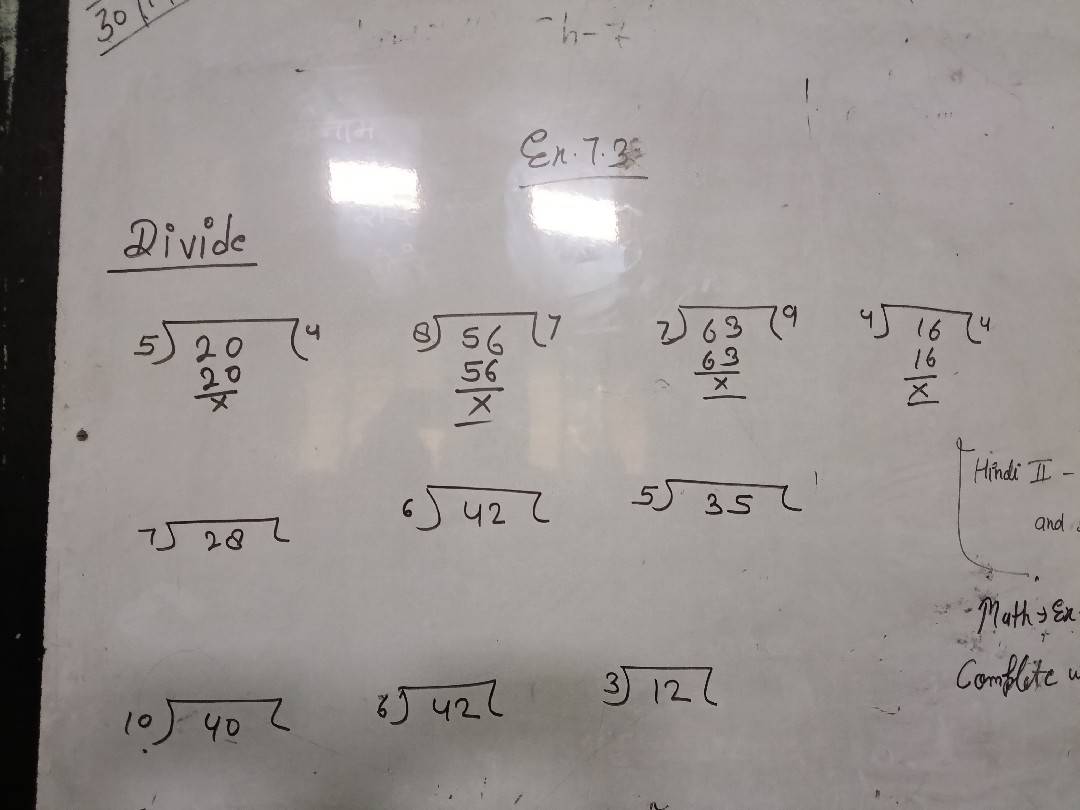 30
h-7
नाम
Ex. 7.3
Divide
5) 20 (4
20
x
8) 56 (7
56
x
7) 63 (9
63
x
4) 16 (4
16
x
7) 28 (
6) 42 (
5) 35 (
Hindi II -
and
Math → Ex
Complete w
10) 40 (
6) 42 (
3) 12 (